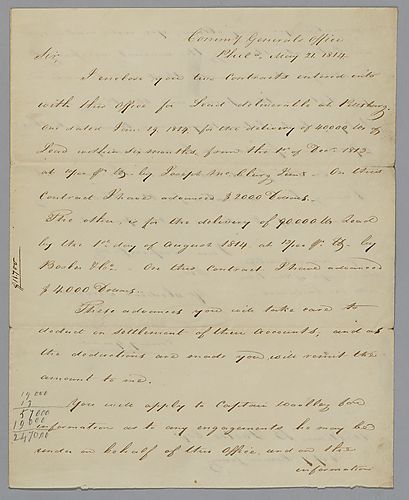 Comm'y Generals Office
Phila. May 21. 1814.
Sir,
I enclose you two Contracts entered into
with this Office for Lead deliverable at Pittsburg.
One dated Jan. 19. 1814 for the delivery of 40000 lbs of
Lead within six months, from the 1st of Dec. 1813
at by Joseph On this
Contract I have advanced $ 2000
The other, is for the delivery of 90.000 lbs Lead
by the 1st day of August 1814 at by
On this contract I have advanced
$ 4.000
These advances you will take care to
deduct on settlement of their accounts, and as
the deductions are made you will remit the
amount to me.
You will apply to Captain for
information as to any engagements he may be
under on behalf of this Office, and on the
information
19.000
13
57000
19000
247000